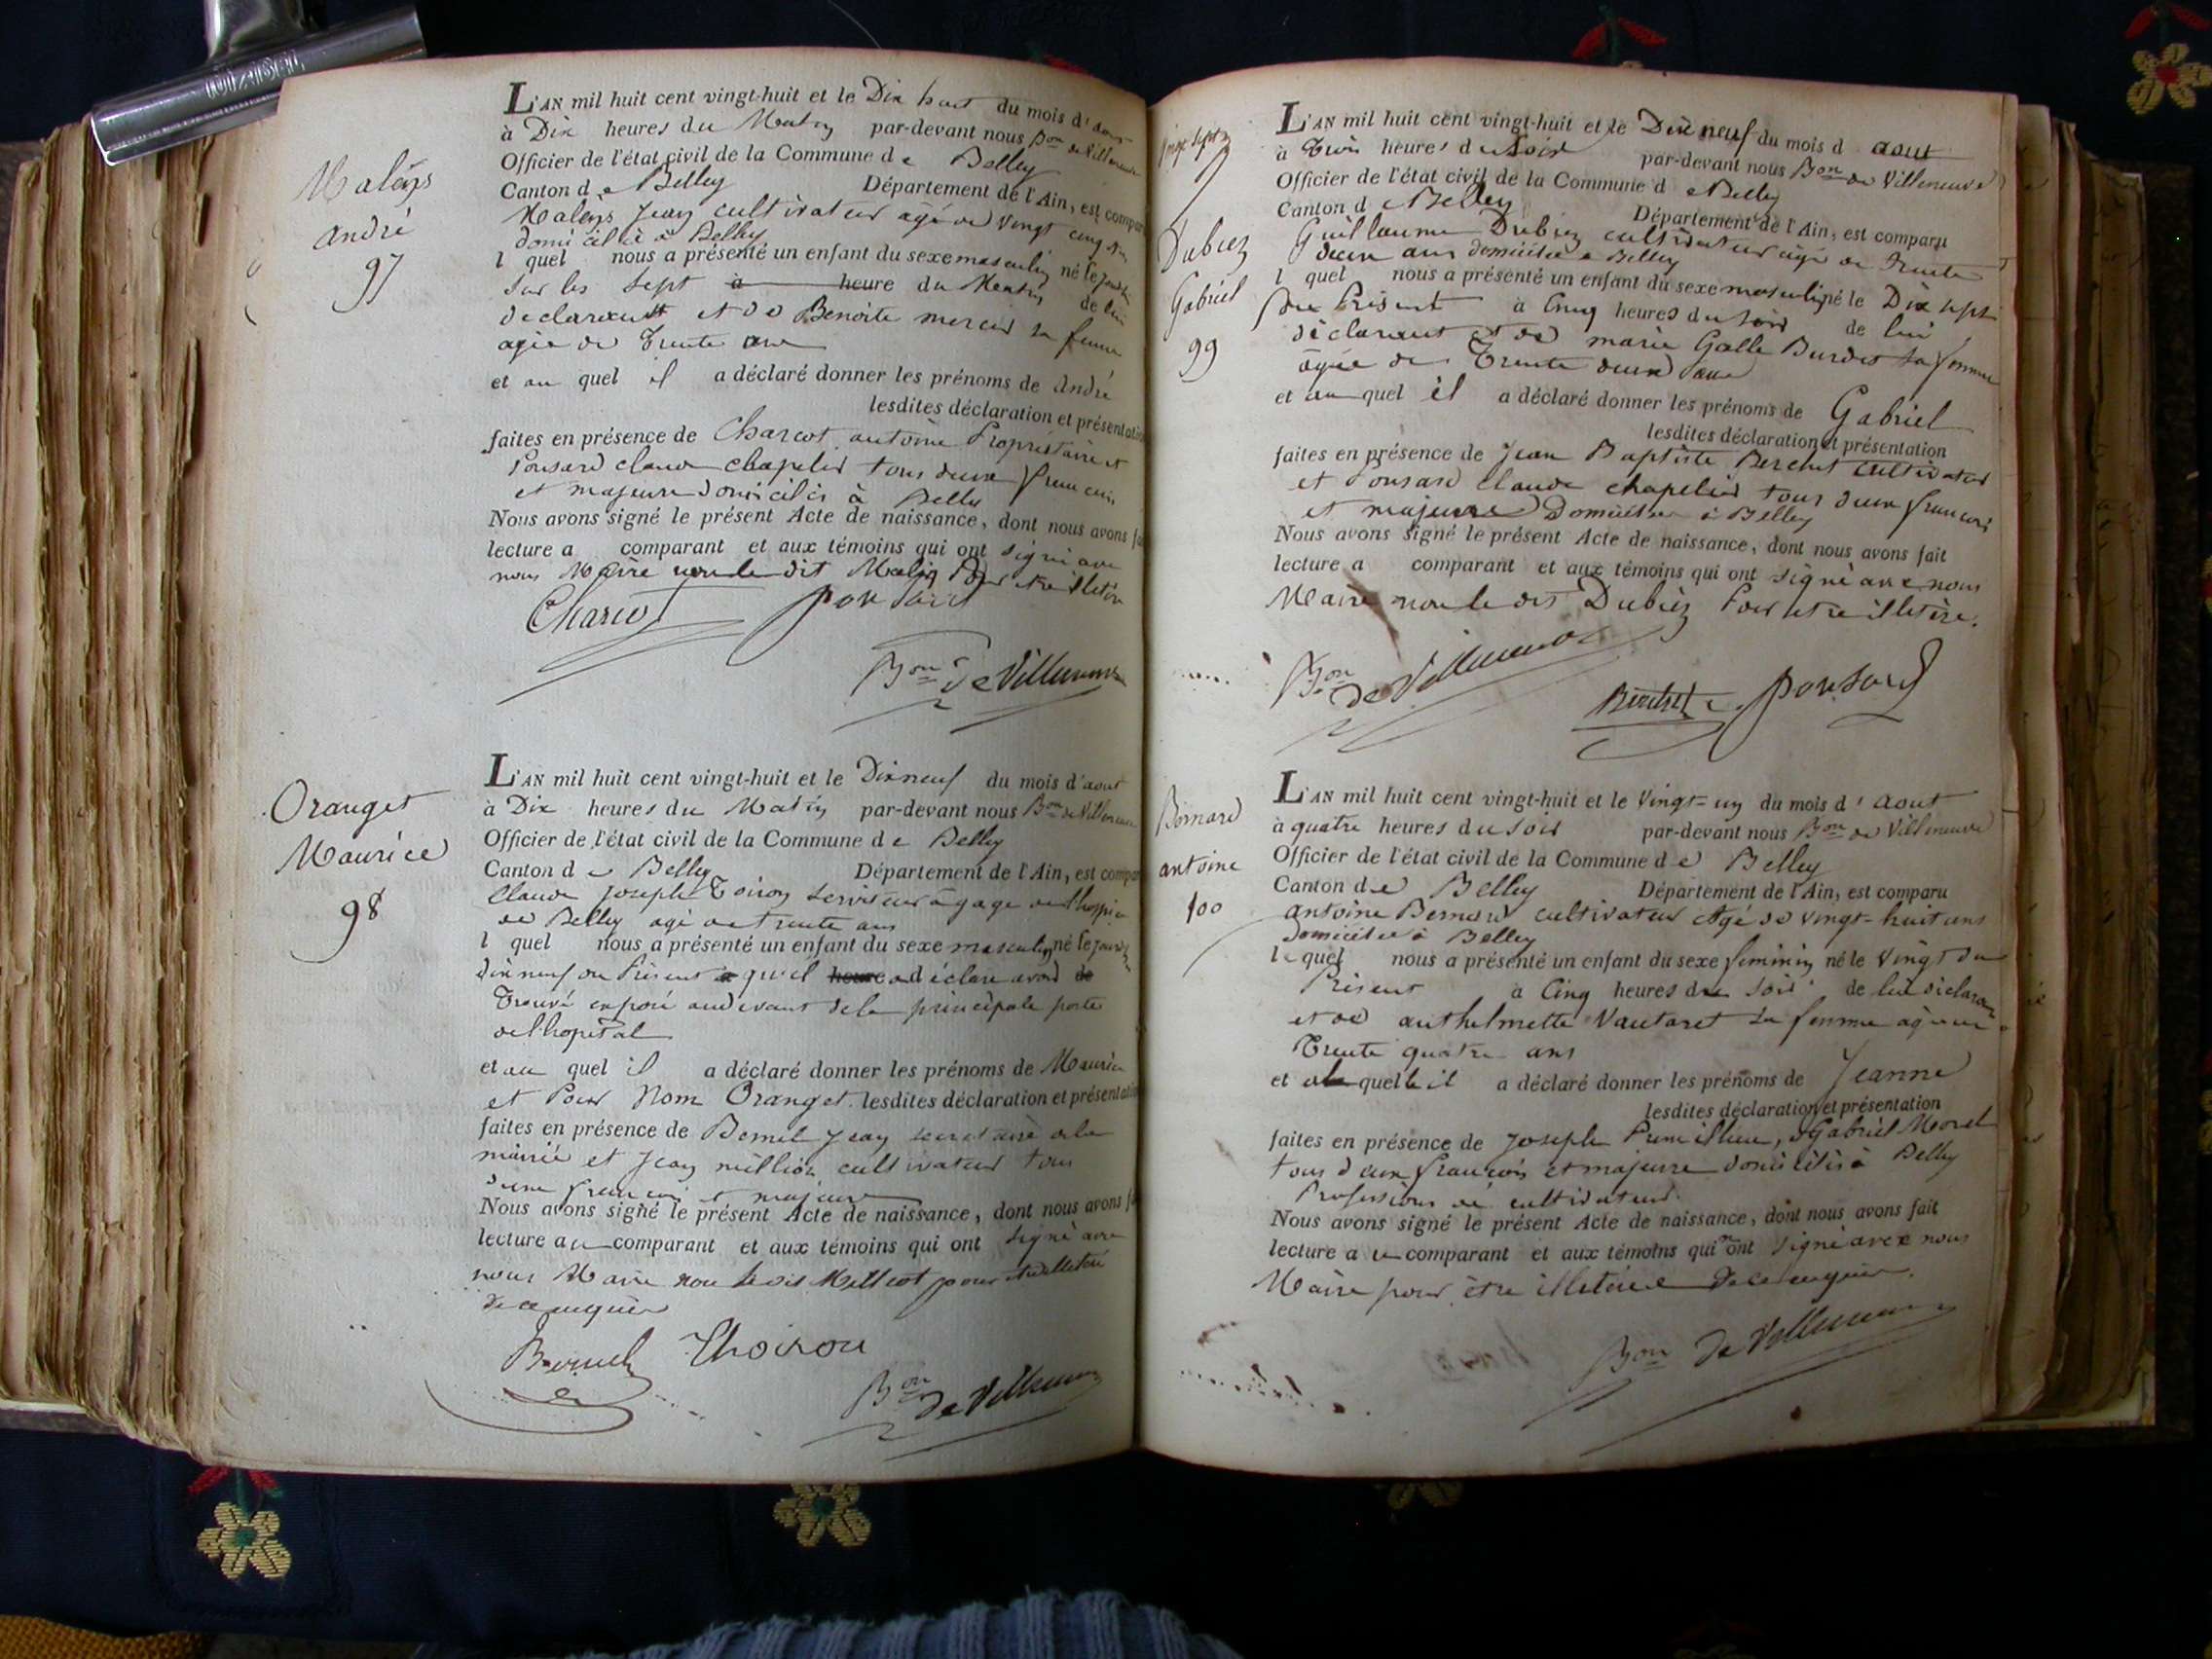 L'AN mil huit cent vingt-huit et le Dix huit du mois d'aout
à Dix heures du Matin par-devant nous Bon de Villeneuve
Officier de l'état civil de la Commune de Belley
Canton de Belley Département de l'Ain, est compar
Jean cultivateur agé de vingt cinq ans
domicilié à Belley
l quel nous a présenté un enfant du sexe masculin né le
Sur les Sept à heure du Matin de lui
declarant et de Benoite mercier sa femme
agée de Trente ans
et au quel il a déclaré donner les prénoms de André
lesdites déclaration et présentation
faites en présence de Charcot antoine Propriétaire et
Ponsard claude chapelier tous deux francais
et majeure domiciliés à Belley
Nous avons signé le présent Acte de naissance, dont nous avons fa
lecture a comparant et aux témoins qui ont signé avec
nous Maire non le dit Pour etre illetere
Charcot
Ponsard
Bon de Villeneuve
André
97
L'AN mil huit cent vingt-huit et le Dixneuf du mois d'aout
à Dix heures du Matin par-devant nous Bon de Villeneuve
Officier de l'état civil de la Commune de Belley
Canton de Belley Département de l'Ain, est compar
Claude joseph Toiron serviteur à gage de l'hospice
de Belley agé de trente ans
l quel nous a présenté un enfant du sexe masculin né le
dixneuf du Présent a quel heure a déclaré avoir de
Trouvé exposé audevant de la principale porte
de lhopital
et au quel il a déclaré donner les prénoms de Maurice
et Pour Nom Oranget lesdites déclaration et présentation
faites en présence de Jean secretaire de la
mairie et Jean cultivateur tous
deux francais et majeure
Nous avons signé le présent Acte de naissance, dont nous avons fa
lecture au comparant et aux témoins qui ont signé avec
nous Maire non le dit pour etre illetere
de ce enquis
Thoiron
Bon de Villeneuve
Oranget
Maurice
98
L'AN mil huit cent vingt-huit et le Dix neuf du mois d aout
à Trois heures du Soir par-devant nous Bon de Villeneuve
Officier de l'état civil de la Commune de Belley
Canton de Belley Département de l'Ain, est comparu
Guillaume Dubiez cultivateur agé de Trente
deux ans domicilié a Belley
l quel nous a présenté un enfant du sexe masculin né le Dix sept
du Présent à Cinq heures du soir de lui
déclarant et de marie Galle Burdet sa femme
agée de Trente deux ans
et au quel il a déclaré donner les prénoms de Gabriel
lesdites déclaration et présentation
faites en présence de Jean Baptiste Berchet cultivateur
et Ponsard Claude chapelier tous deux francais
et majeure Domiciliés à Belley
Nous avons signé le présent Acte de naissance, dont nous avons fait
lecture a comparant et aux témoins qui ont signé avec nous
Maire non le dit Dubiez Pour etre illetère.
Bon de Villeneuve
Berchet
Ponsard
Dubiez
Gabriel
99
L'AN mil huit cent vingt-huit et le Vingt-un du mois d'aout
à quatre heures du soir par-devant nous Bon de Villeneuve
Officier de l'état civil de la Commune de Belley
Canton de Belley Département de l'Ain, est comparu
antoine Bernard cultivateur agé de vingt-huit ans
domicilié à Belley
le quel nous a présenté un enfant du sexe feminin né le Vingt du
Présent à Cinq heures du soir de lui déclarant
et de anthelmette Vautaret sa femme agée de
Trente quatre ans
et a la quelle il a déclaré donner les prénoms de Jeanne
lesdites déclaration et présentation
faites en présence de Joseph, Gabriel Morel
tous deux francais et majeure domiciliés à Belley
Professions de cultivateurs
Nous avons signé le présent Acte de naissance, dont nous avons fait
lecture au comparant et aux témoins qui n'ont signé avec nous
Maire pour être illeterée de ce enquis.
Bon de Villeneuve
antoine
100